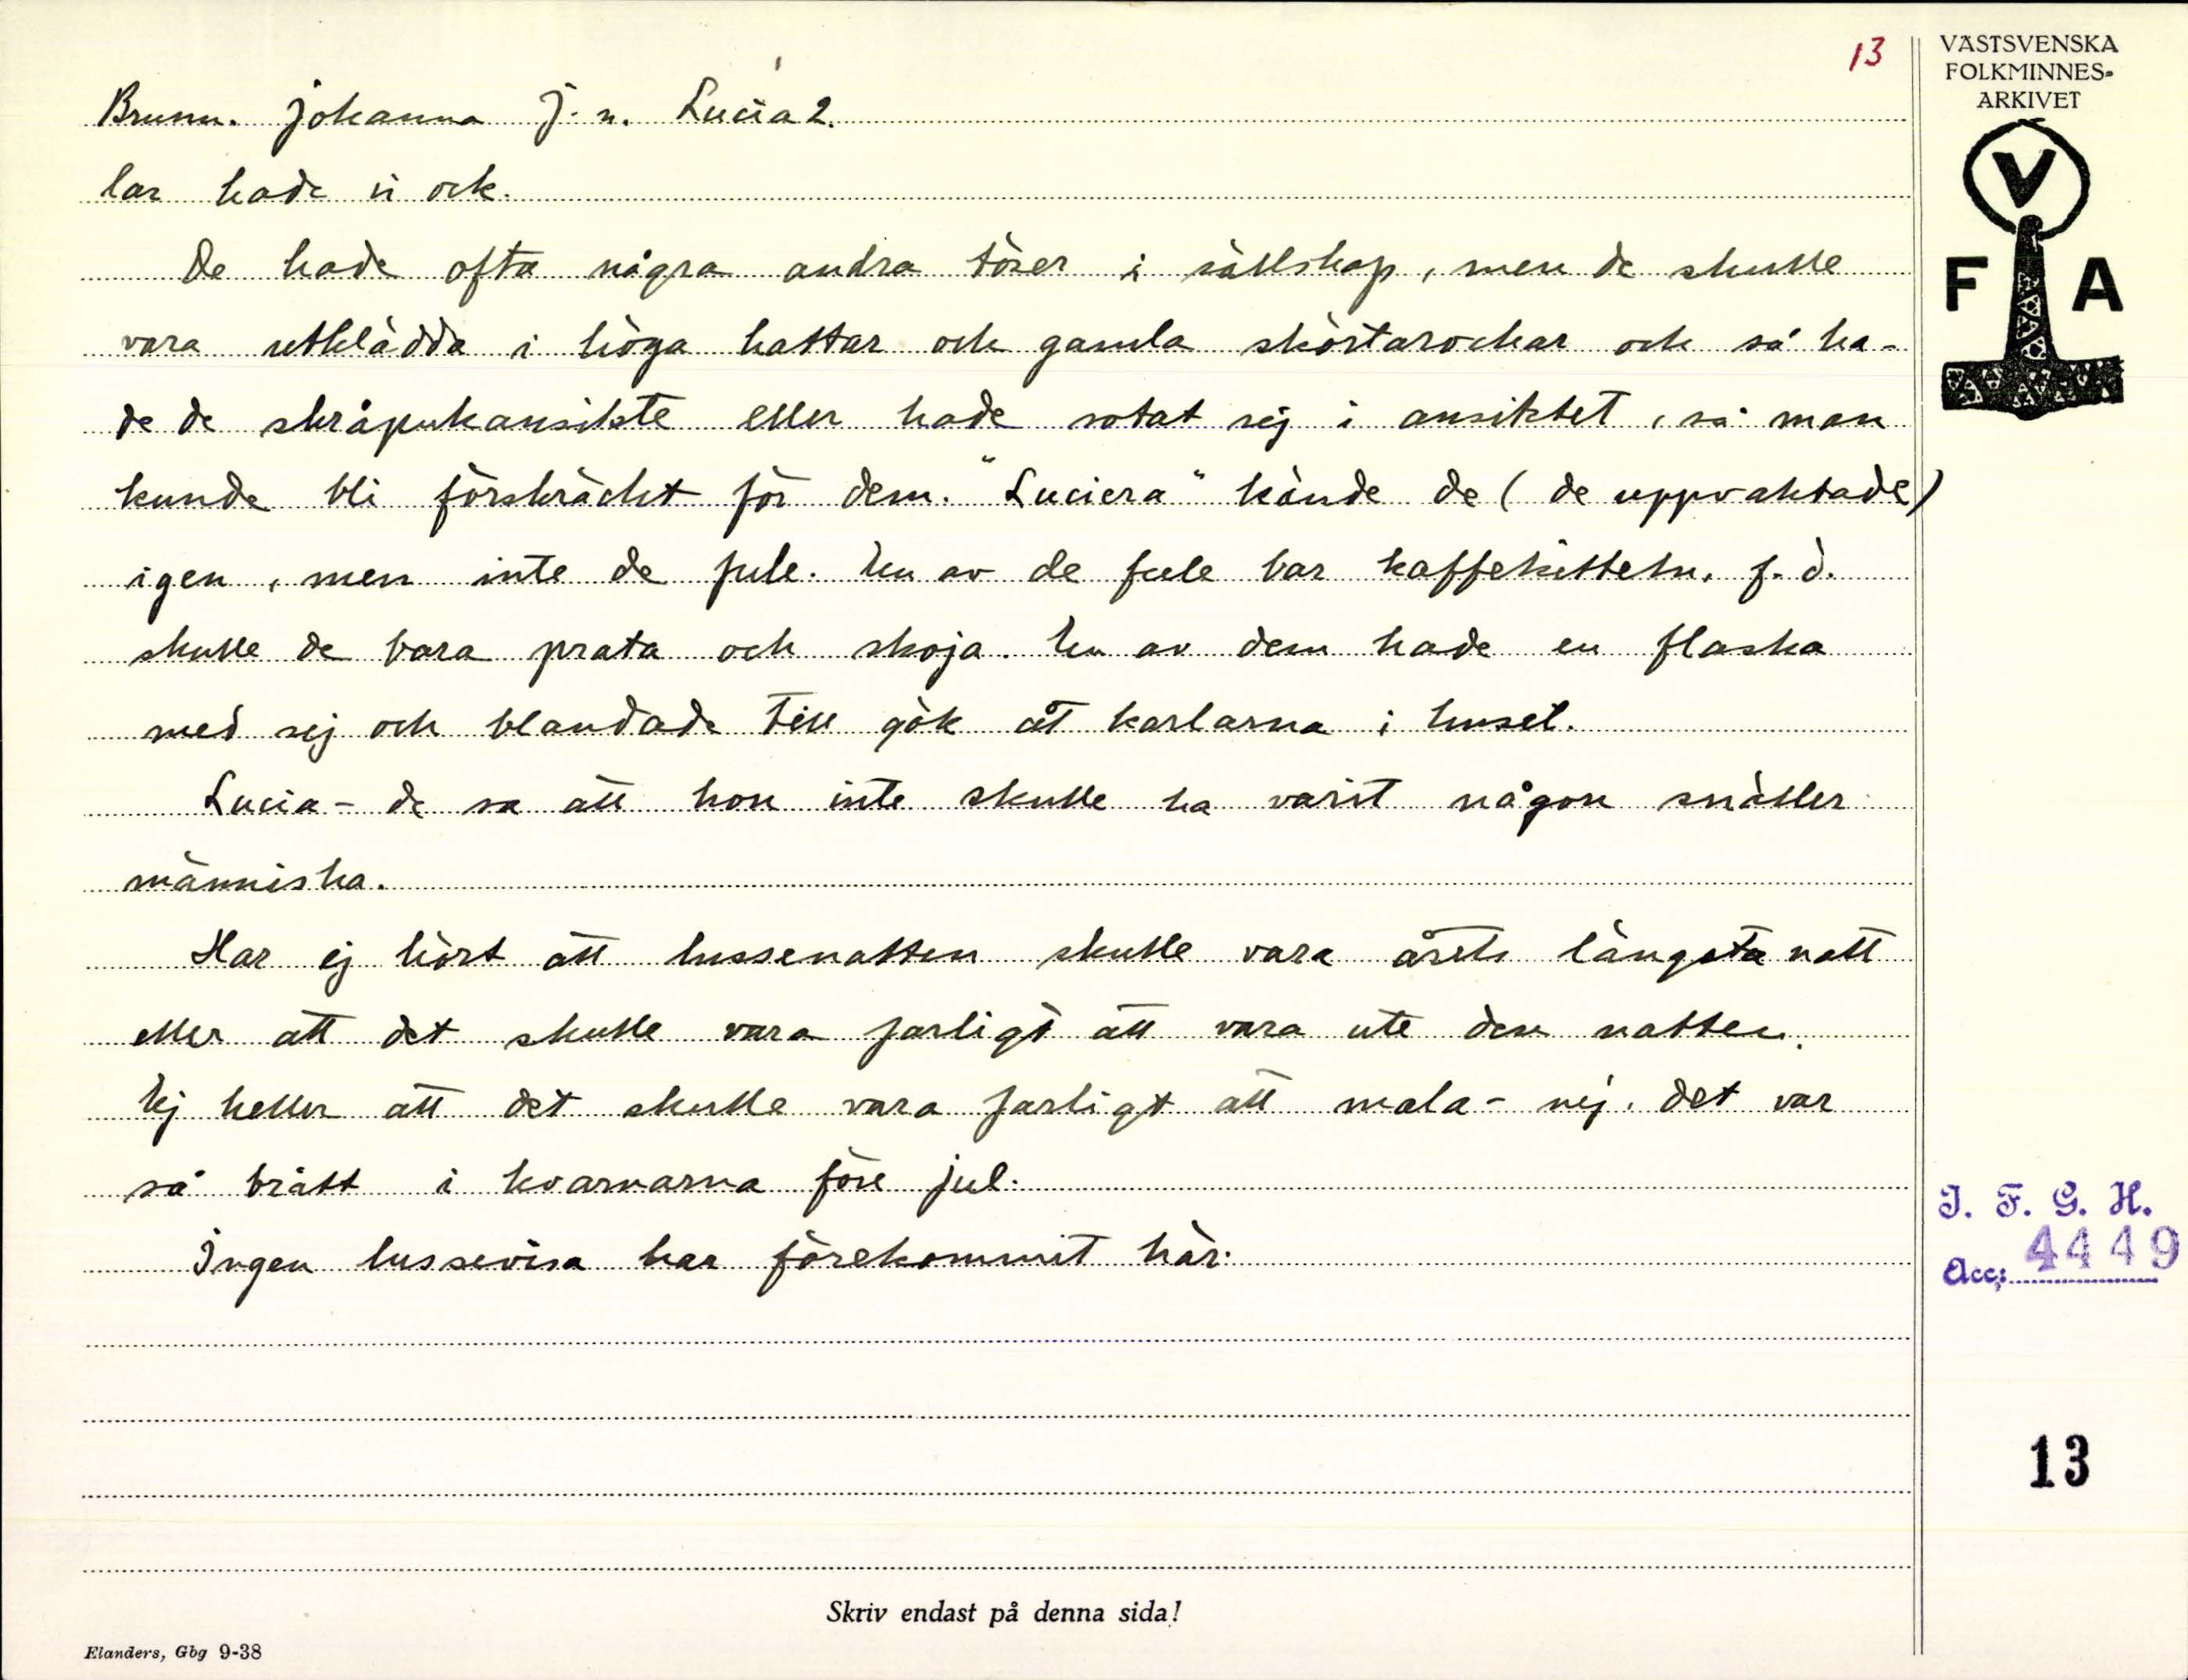 13
Brunn. Johanna J. n. Lucia 2.
lar hade vi ock.
De hade ofta några andra töser i sällskap, men de skulle
vara utklädda i höga hattar och gamla skörtarockar och så ha-
de de skråpukansikte eller hade sotat sej i ansiktet, så man
kunde bli förskräckt för dem. "Luciera" kände de (de uppvaktade)
igen, men inte de fule. En av de fule bar kaffekitteln, f. ö.
skulle de bara prata och skoja. En av dem hade en flaska
med sej och blandade till gök åt karlarna i huset.
Lucia - de sa att hon inte skulle ha varit någon snäller
människa.
Har ej hört att lussenatten skulle vara årets längsta natt
eller att det skulle vara farligt att vara ute den natten.
Ej heller att det skulle vara farligt att mala - nej, det var
så brått i kvarnarna före jul.
Ingen lussevisa har förekommit här.
Skriv endast på denna sida!
Elanders, Gbg 9-38
VÄSTSVENSKA
FOLKMINNES-
ARKIVET
V
F A
I. F. G. H.
Acc: 4449
13